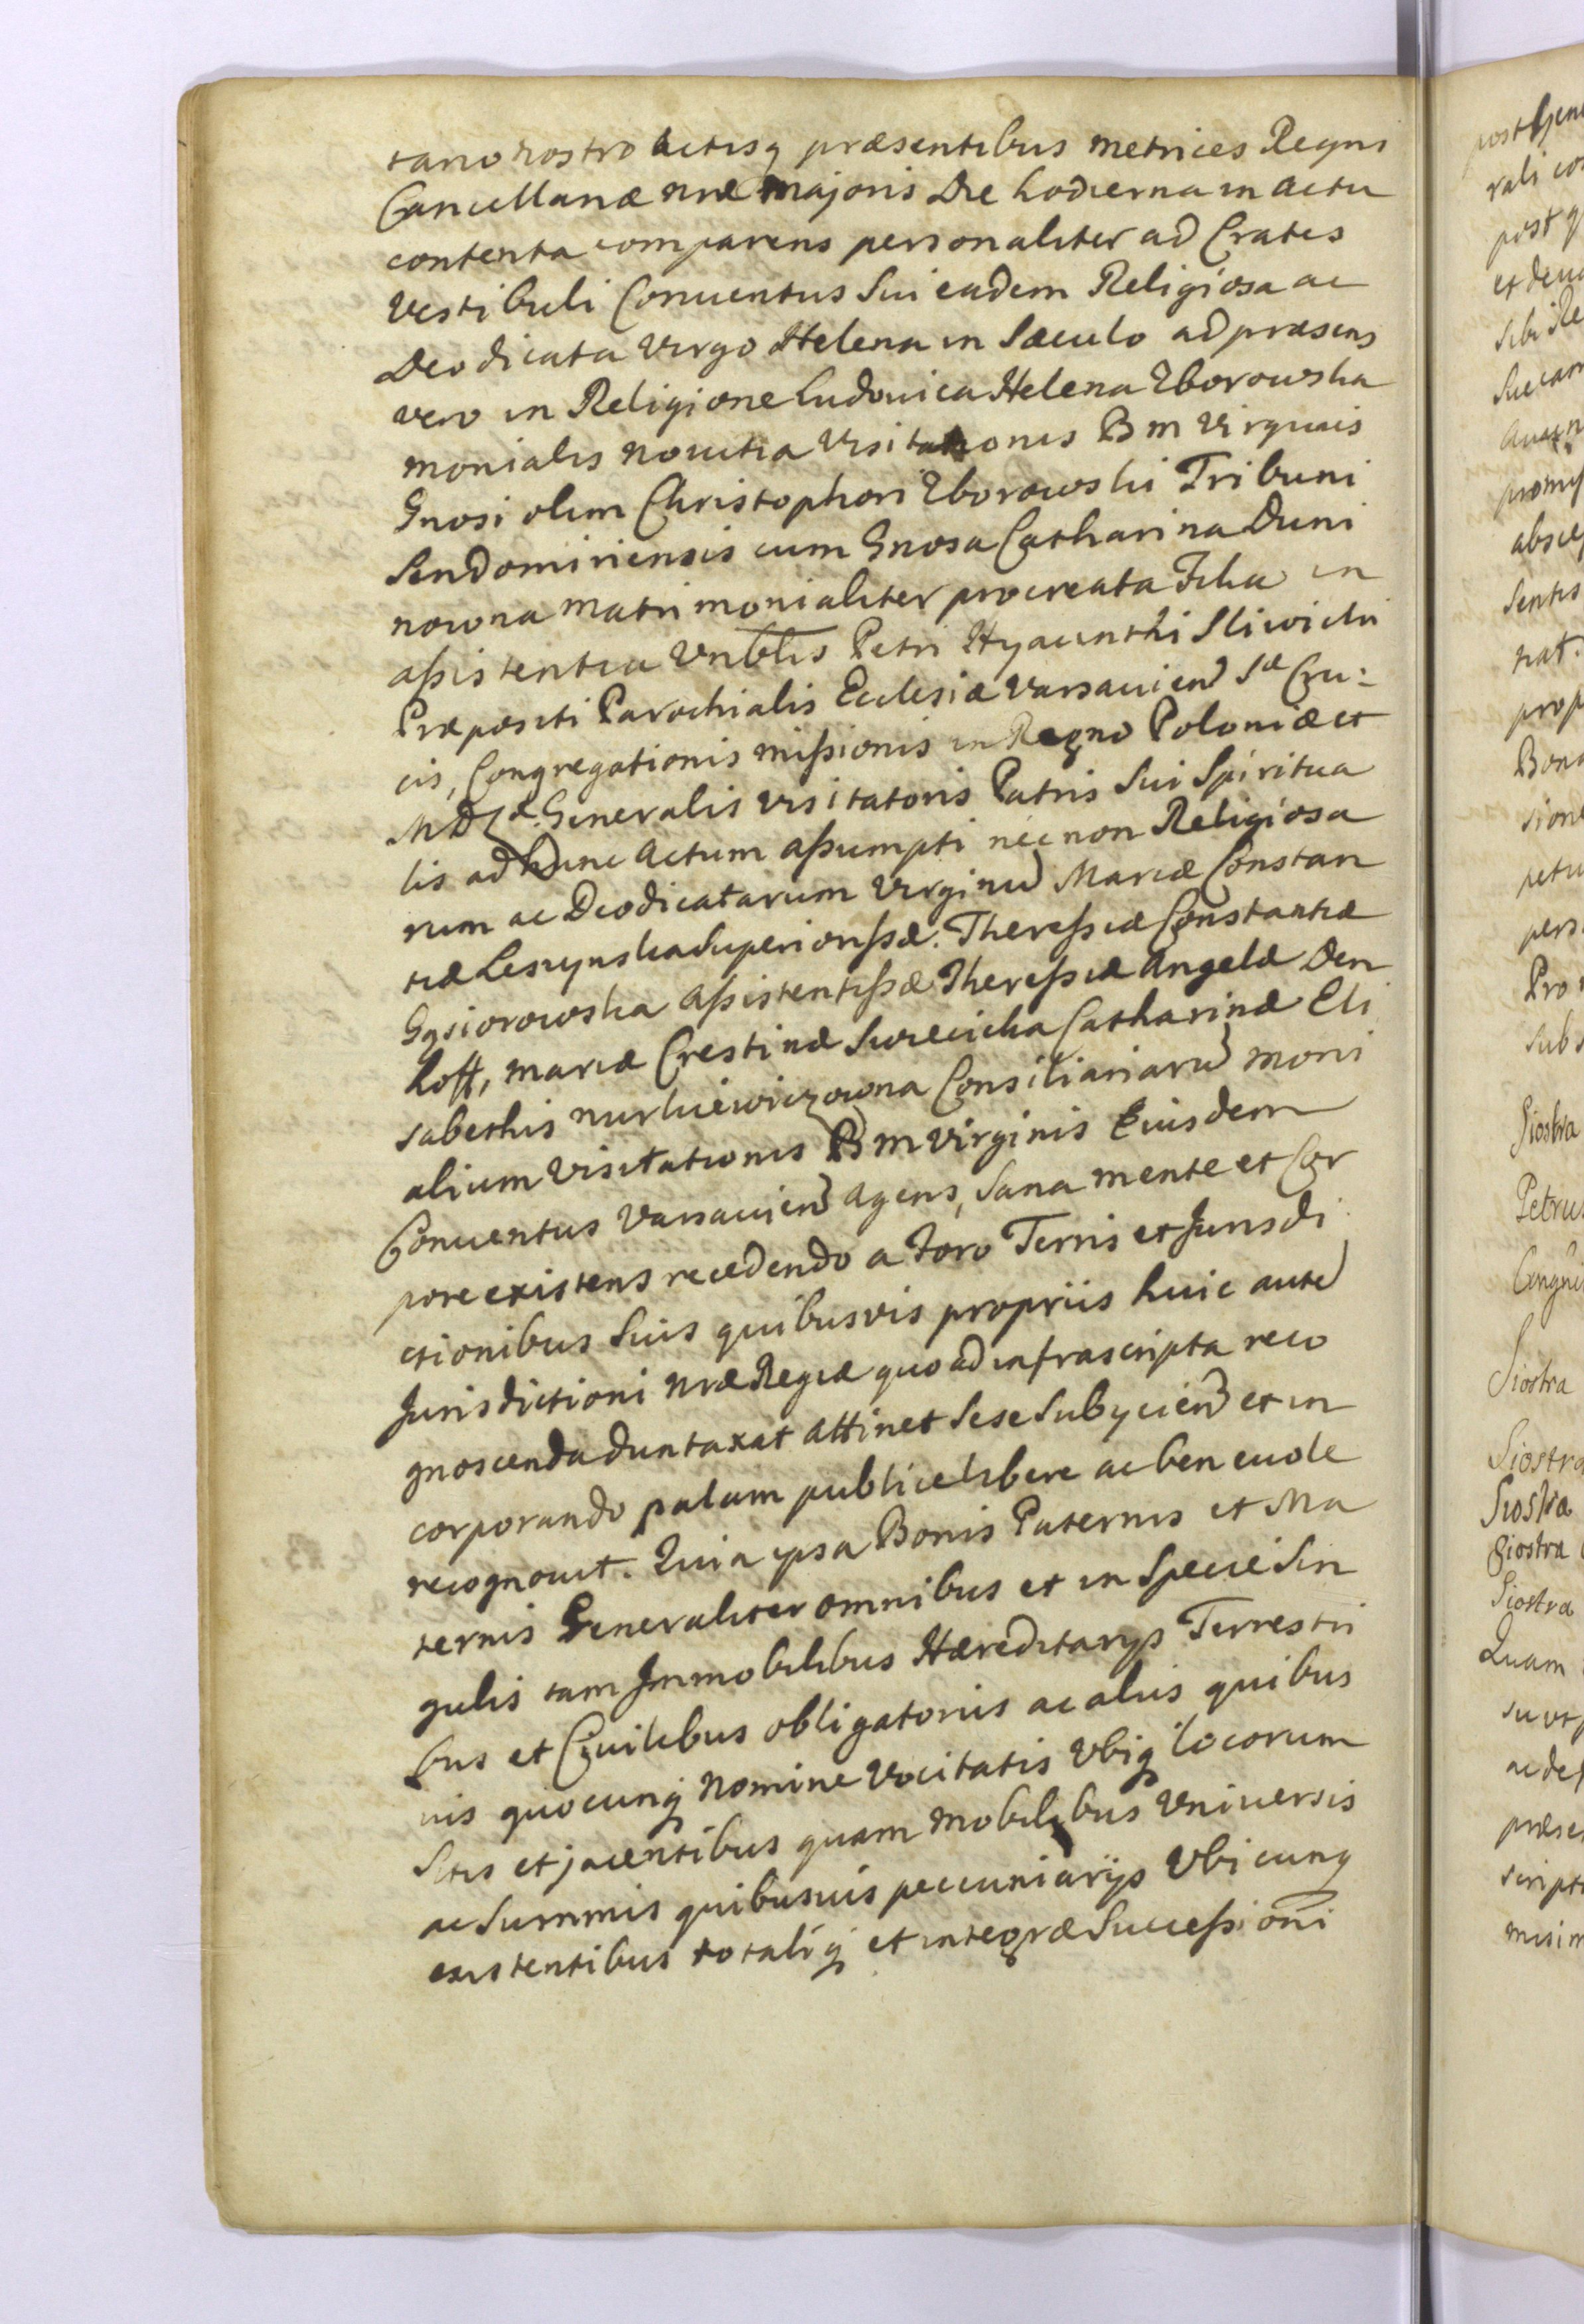 tario nostro Actisq præsentibus Metrices Regni
Cancellariæ nræ Majoris Die hodierna in Actu
contenta comparens personaliter ad Crates
Vestibuli Conuentus Sui eadem Religiosa ac
Deo dicata Virgo Helena in Sæculo ad præsens
vero in Religione Ludouica Helena Zborowska
monialis nouitia Visitationis B M Virginis
Gnosi olim Christophori Zborowski Tribuni
Sendomiriensis cum Gnosa Catharina Duni
nowna matrimonialiter procreata Filia in
aßistentia Vnblis Petri Hyacinthi Sliwicki
Præpositi Parochialis Ecclesiæ Varsauien Sæ Cru:
cis, Congregationis mißionis in Regno Poloniæ et
M D L. Generalis Visitatoris Patris Sui Spiritua
lis ad hunc Actum aßumpti nec non Religiosa
rum ac Deodicatarum Virginu Mariæ Constan
tiæ Lesczynska Superiorißæ. Thereßiæ Constantiæ
Gąsiorowska Aßistentißæ Thereßiæ Angelæ Den
hoff, mariæ Crestinæ Surecicka Catharinæ Eli
sabethis nurkiewiczowna Consiliariaru moni
alium Visitationis B M Virginis Eiusdem
Conuentus Varsauien agens, Sana mente et Cor
pore existens recedendo a Foro Terris et Jurisdi
ctionibus Suis quibusvis propriis huic aute
Jurisdictioni nræ Regiæ quo ad infrascripta reco
gnoscenda duntaxat attinet Sese Subycien et in
corporando palam publice libere ac beneuole
recognouit. Quia ipsa Bonis Paternis et Ma
ternis Generaliter omnibus et in Specie Sin
gulis tam Jmmobilibus Hæreditarys Terrestri
bus et Ciuilibus obligatoriis ac aliis quibus
uis quocunq nomine Vocitatis Vbiq locorum
Sitis et jacentibus quam Mobilibus Vniuersis
ac Summis quibusuis pecuniarijs Vbicunq
existentibus totaliq et integræ Succeßioni
Siostra
Petrus
Siostra
Siostra
Siostra
Siostra
Siostra
Quam